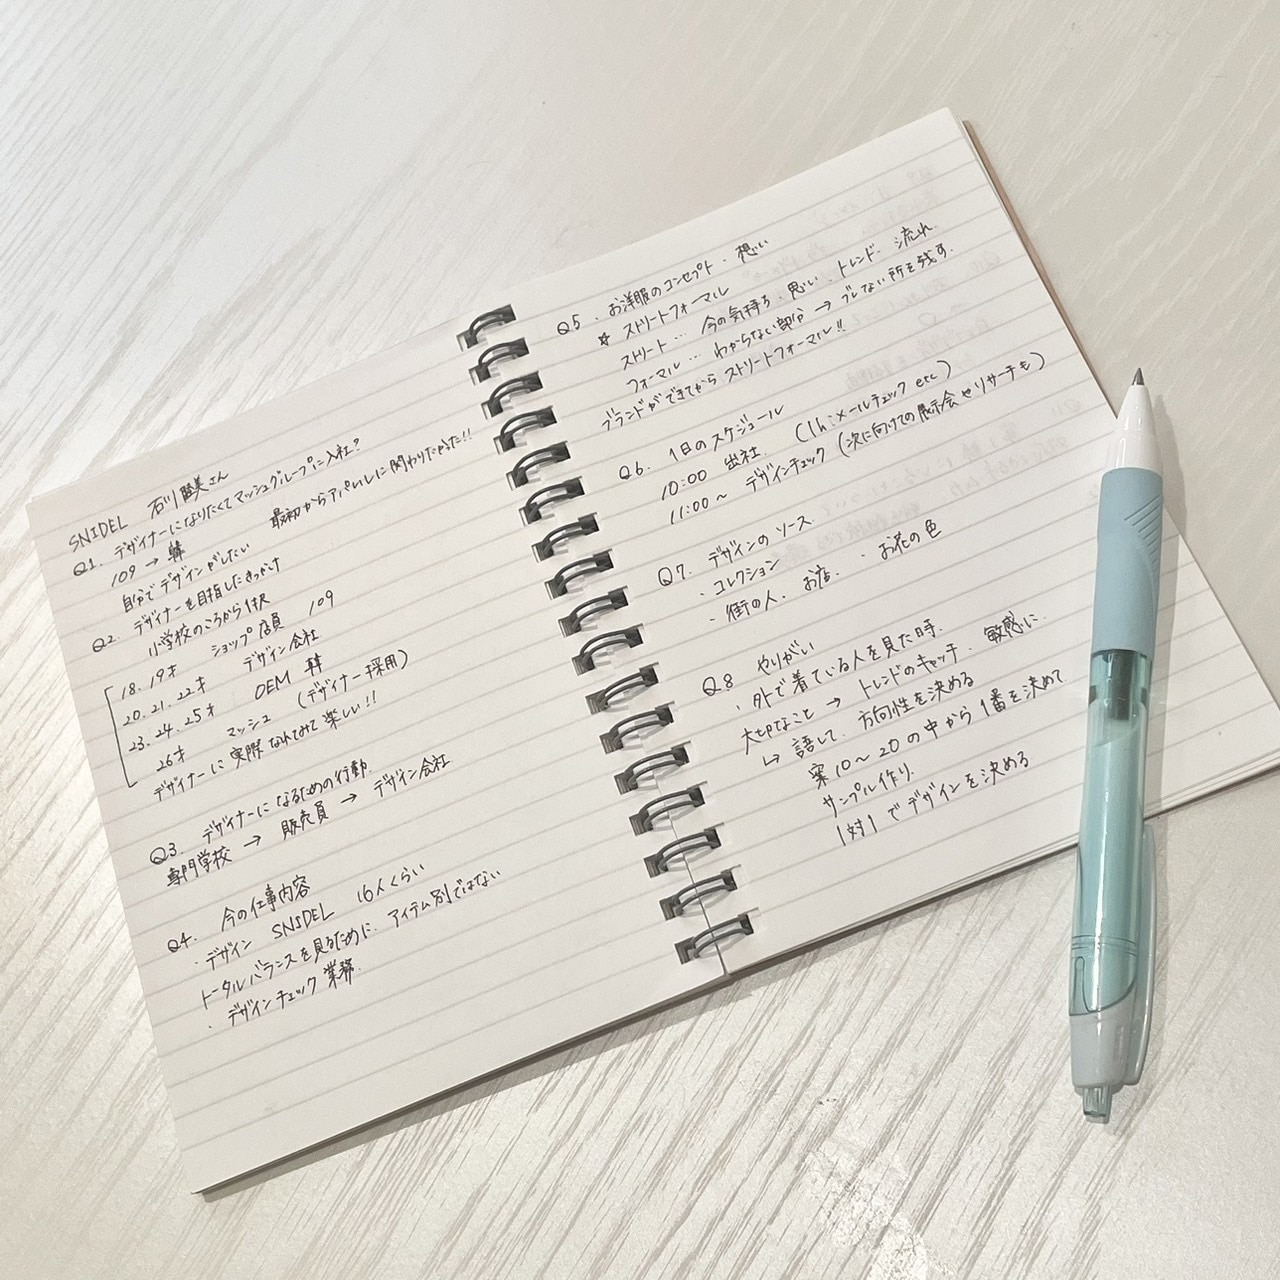 SNIDEL 石川 さん
Q1. デザイナーになりたくてマッシュグループに入社?
109 → 韓
最初からアパレルに関わりたかった!!
自分でデザインがしたい
Q2. デザイナーを目指したきっかけ
小学校のころから1択
18.19才 ショップ店員 109
20.21.22才 デザイン会社
23.24.25才 OEM 韓
26才 マッシュ (デザイナー採用)
デザイナーに実際なれてみて楽しい!!
Q3. デザイナーになるための行動.
専門学校 → 販売員 → デザイン会社
Q4. 今の仕事内容
・デザイン SNIDEL 16人くらい
トータルバランスを見るために. アイテム別ではない
・デザインチェック業務.
Q5. お洋服のコンセプト・想い
☆ ストリートフォーマル
ストリート… 今の気持ち、思い、トレンド、流れ.
フォーマル… わからない部分 → ブレない所を残す.
ブランドができてから ストリートフォーマル!!
Q6. 1日のスケジュール
10:00 出社. (1h:メールチェック etc)
11:00〜 デザインチェック (次に向けての展示会やリサーチも)
Q7. デザインのソース.
・コレクション
・街の人. お店. ・お花の色
Q8 やりがい
・外で着ている人を見た時.
大切なこと → トレンドのキャッチ. 敏感に.
↳ 話して. 方向性を決める
案10〜20の中から1番を決めて
サンプル作り.
1対1でデザインを決める